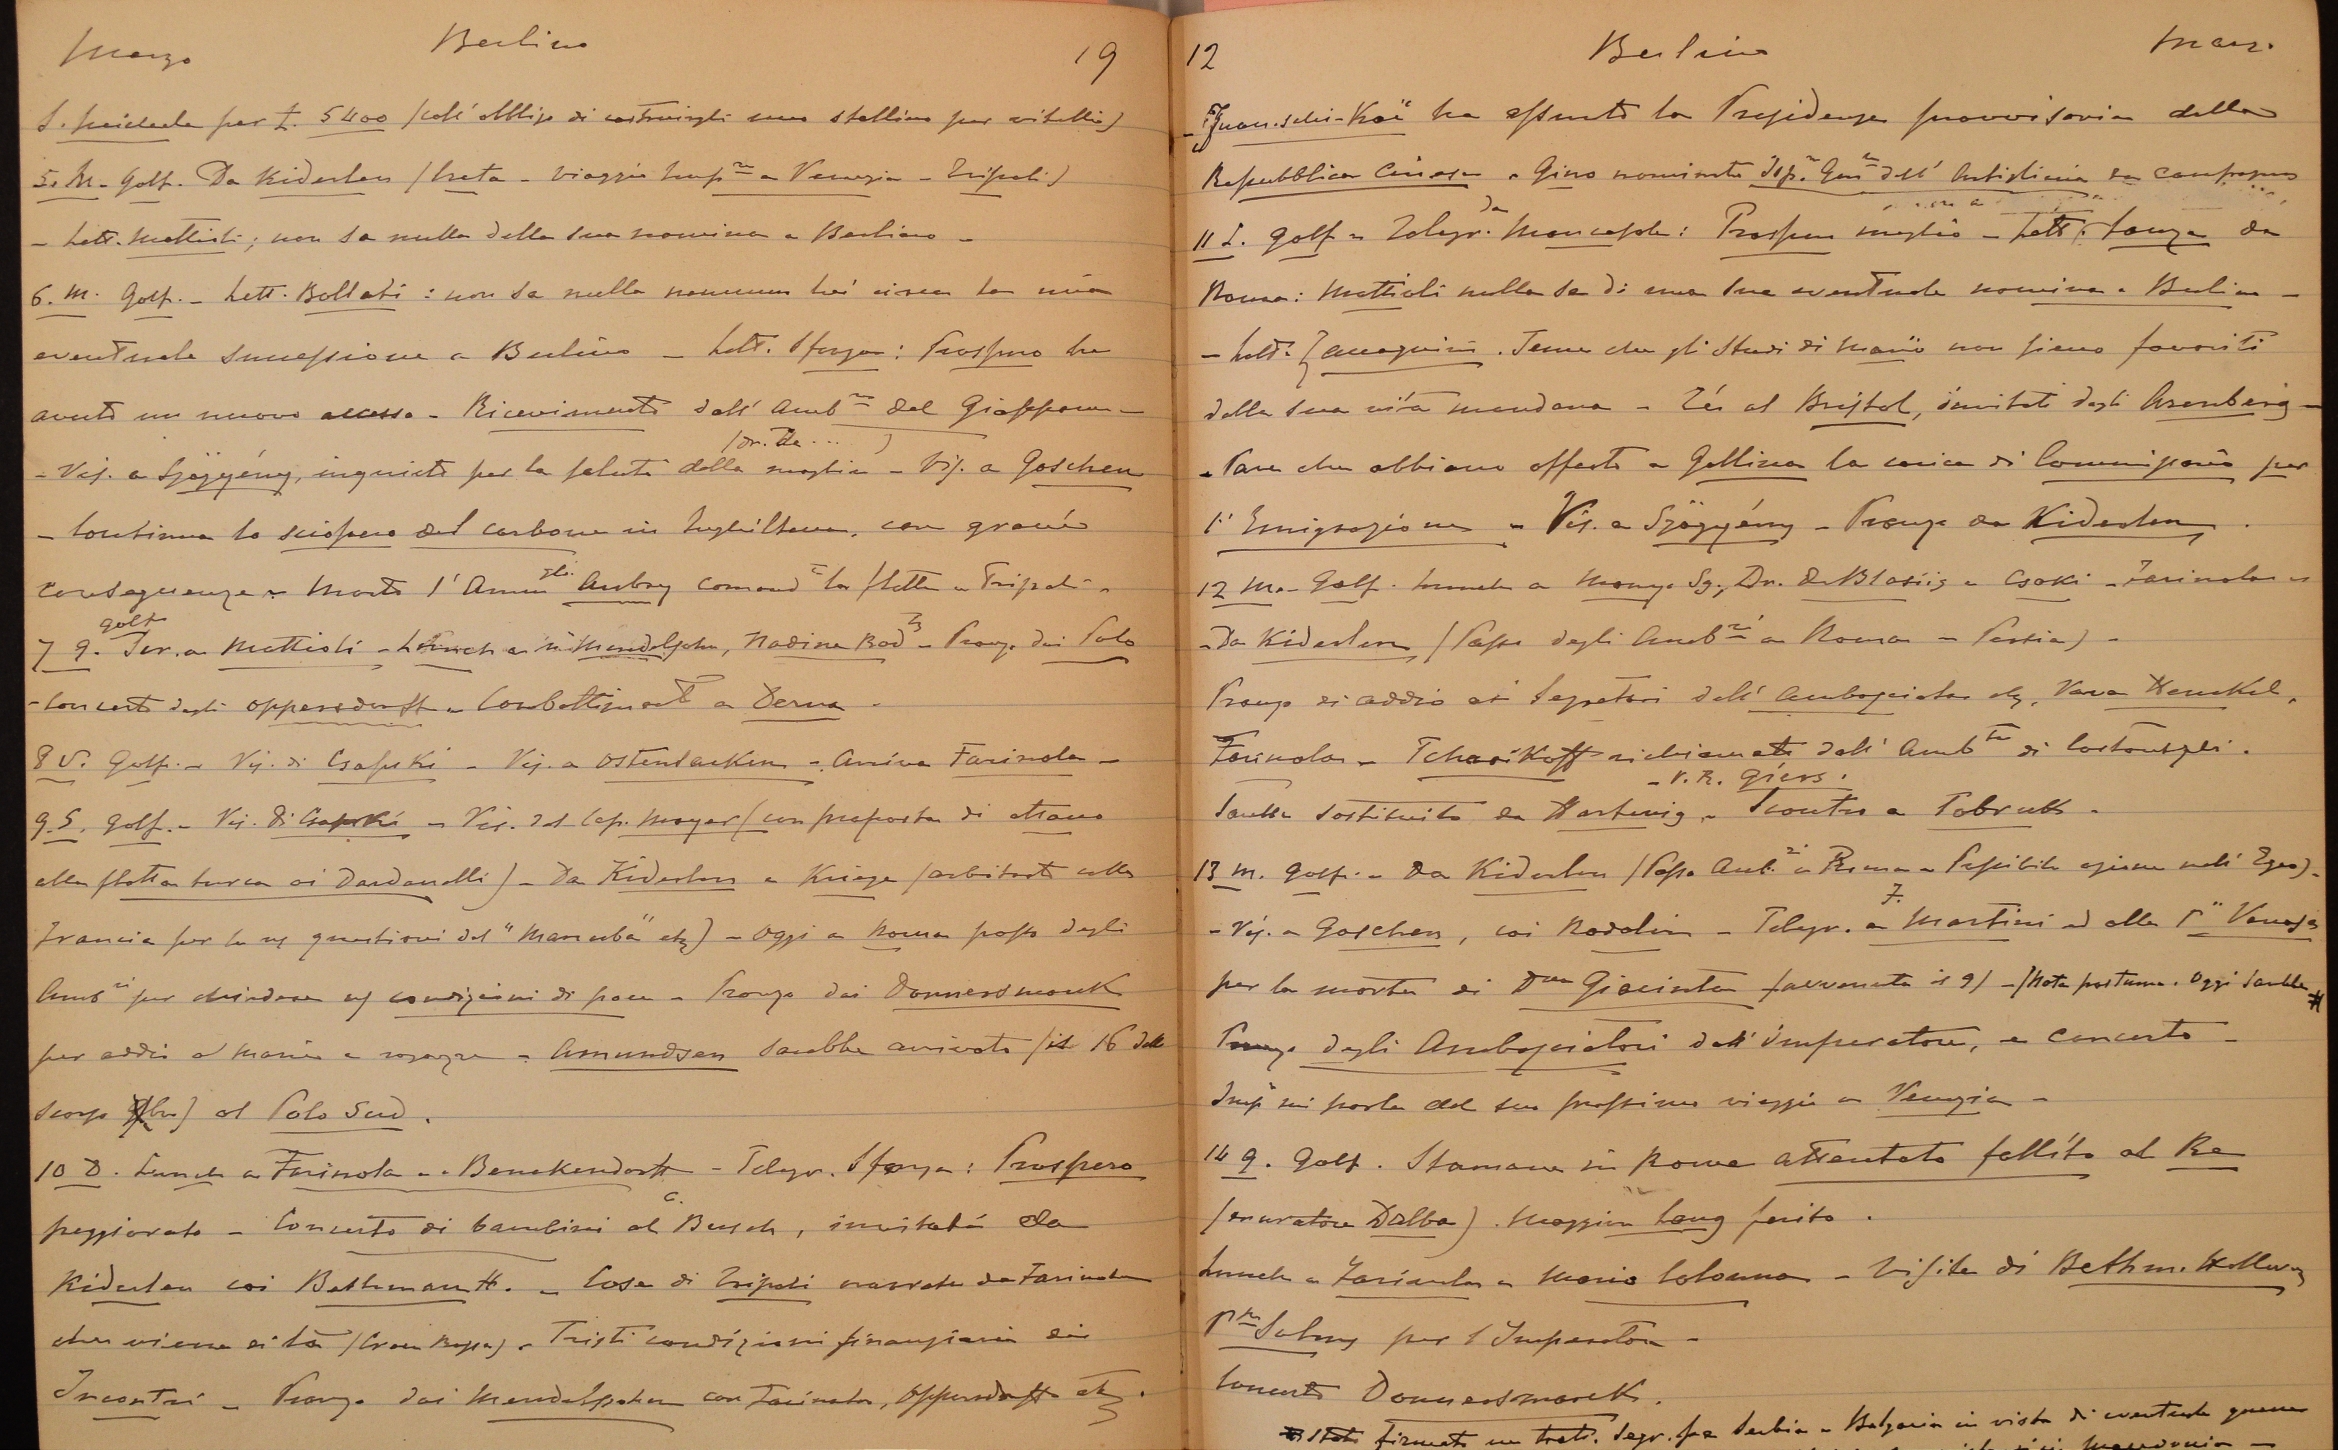 Marzo Berlino 19
S. per £. 5400 (coll'obbligo di costruirgli una stallina per vitelli)
5. M. Golf. Da Kiderlen (Creta - viaggio Imp.re a Venezia - Tripoli)
- Lett. Mattioli; non sa nulla della sua nomina a Berlino -
6. M. Golf. - Lett. Bollati: non sa nulla nemmeno lui circa la mia
eventuale successione a Berlino - Lett. Sforza: Prospero ha
avuto un nuovo accesso - Ricevimento dall'Amb.re del Giappone -
(dr. de ... )
- Vis. a Szögyény, inquieto per la salute della moglie - Vis. a Goschen
- Continua lo sciopero del carbone in Inghilterra, con gravi
conseguenze - Morto l'Ammgli. Aubry comand.te la flotta a Tripoli -
golf
7 G. Scr. a Mattioli - Lunch a Mendelssohn, Nadine - Pranzo dai Polo
- Concerto degli Oppersdorff - Combattimento a Derna -
8 V. Golf. - Vis. di Czapski - Vis. a Ostensacken - Arriva Farinola -
9. S. Golf. - Vis. di Czapski - Vis. del Cap. Mayer (con proposta di attacco
alla flotta turca ai Dardanelli) - Da Kiderlen e Kriege (arbitrato colla
Francia per le questioni del "Manouba" etc) - Oggi a Roma passo degli
Amb.ri per chiedere condizioni di pace - Pranzo dai Donnersmarck
per addio a Mario e ragazze - Amundsen sarebbe arrivato (il 16 dello
scorso ) al Polo Sud.
10 D. Lunch a Farinola - a Benckendorff - Telegr. Sforza: Prospero
peggiorato - Concerto di bambini al C. Busch, invitati da
Kiderlen coi Bethmann H. - Cose di Tripoli narrate da Farinola
che viene di là (Croce Rossa) - Tristi condizioni finanziarie di
Incontri - Pranzo dai Mendelssohn con Farinola, Oppersdorff etc.
12 Berlino Marz.
- Yuan-schi-Kai ha assunto la Presidenza provvisoria della
Repubblica Cinese - Gino nominato Isp.re Gen.le dell'Artiglieria da campagna
11 L. Golf - Telegr. da Moncasole: Prospero meglio - Lett. Lanza da
Roma: Mattioli nulla sa di una sua eventuale nomina a Berlino -
- Lett. Zaccagnini. Teme che gli studi di Mario non sieno favoriti
dalla sua vita mondana - Tés al Bristol, invitati dagli Arenberg -
- Pare che abbiano offerto a Gallina la carica di Commissario per
l'Emigrazione - Vis. a Szögyény - Pranzo da Kiderlen.
12 M. Golf. Lunch a Monge Sg., Dr. De Blasiis e Csaki - Farinola -
- Da Kiderlen (Passo degli Amb.ri a Roma - Persia) -
Pranzo di addio ai Segretari dell'Ambasciata etc, Vara Henckel,
Farinola - Tcharikoff richiamato dall'Amb.ta di Costantpli.
- V. R. Giers.
Sarebbe sostituito da Hartwig - Scontro a Tobruk -
13 M. Golf. - Da Kiderlen (Passo Amb.ri a Roma - Possibile azione nell'Egeo) -
- Vis. a Goschen, coi Radolin - Telegr. a F. Martini ed alla P.ssa Venosa
per la morte di Dna Giacinta (avvenuta il 9) - (Nota postuma. Oggi sarebbe #
Pranzo degli Ambasciatori dall'Imperatore, e concerto -
Imp. mi parla del suo prossimo viaggio a Venezia -
14 G. Golf. Stamane in Roma attentato fallito al Re
(muratore Dalba). Maggiore Lang ferito.
Lunch a Farinola e Mario Colonna - Visita di Bethm. Hollweg
P.pe Solms per l'Imperatore -
Concerto Donnersmarck.
# stato firmato un tratt. segr. fra Serbia e Bulgaria in vista di eventuale guerra
Macedonia -